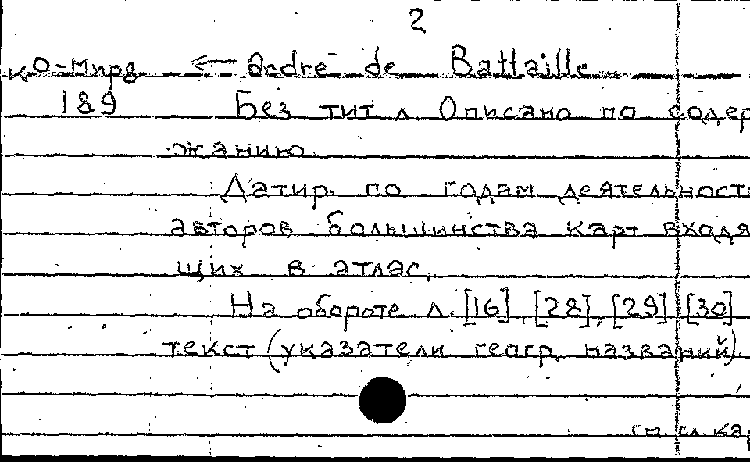 2
КО-Мирд ← Ordre de Battaille
189 Без тит л Описано по содер
жанию.
Датир. по годам деятельност
авторов большинства карт входя
щих в атлас.
На обороте л. [16], [28], [29], [30]
текст (указатели геогр. названий).
см сл ка